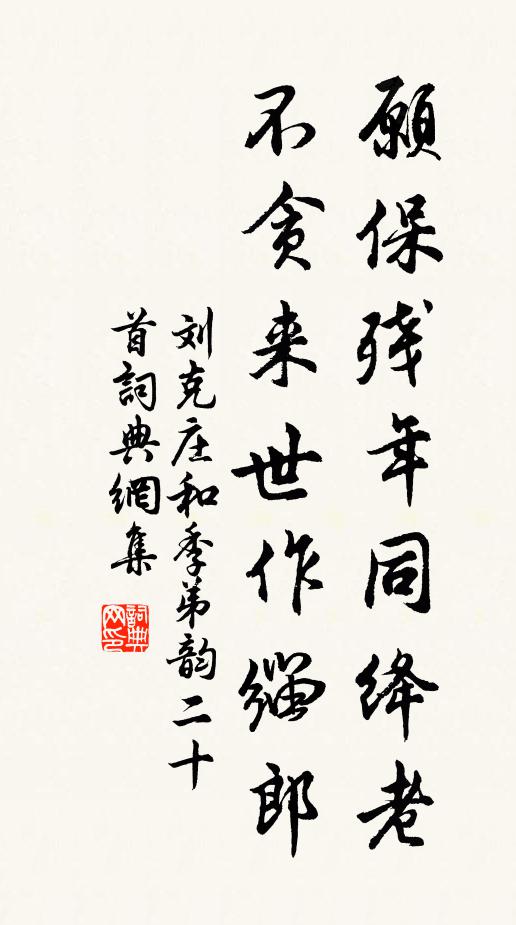 願保残年同絳老
不贪来世作繩郎
刘克庄和季弟韵二十
首詞典網集
詞典
网印